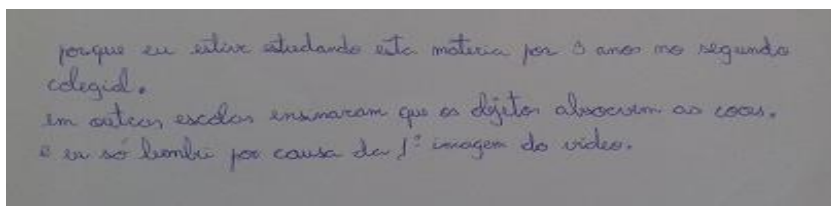 porque eu estive estudando esta materia por 3 anos no segundo
colegial.
em outras escolas ensinaram que os objetos absorvem as cores.
e eu só lembri por causa da 1ª imagem do video.